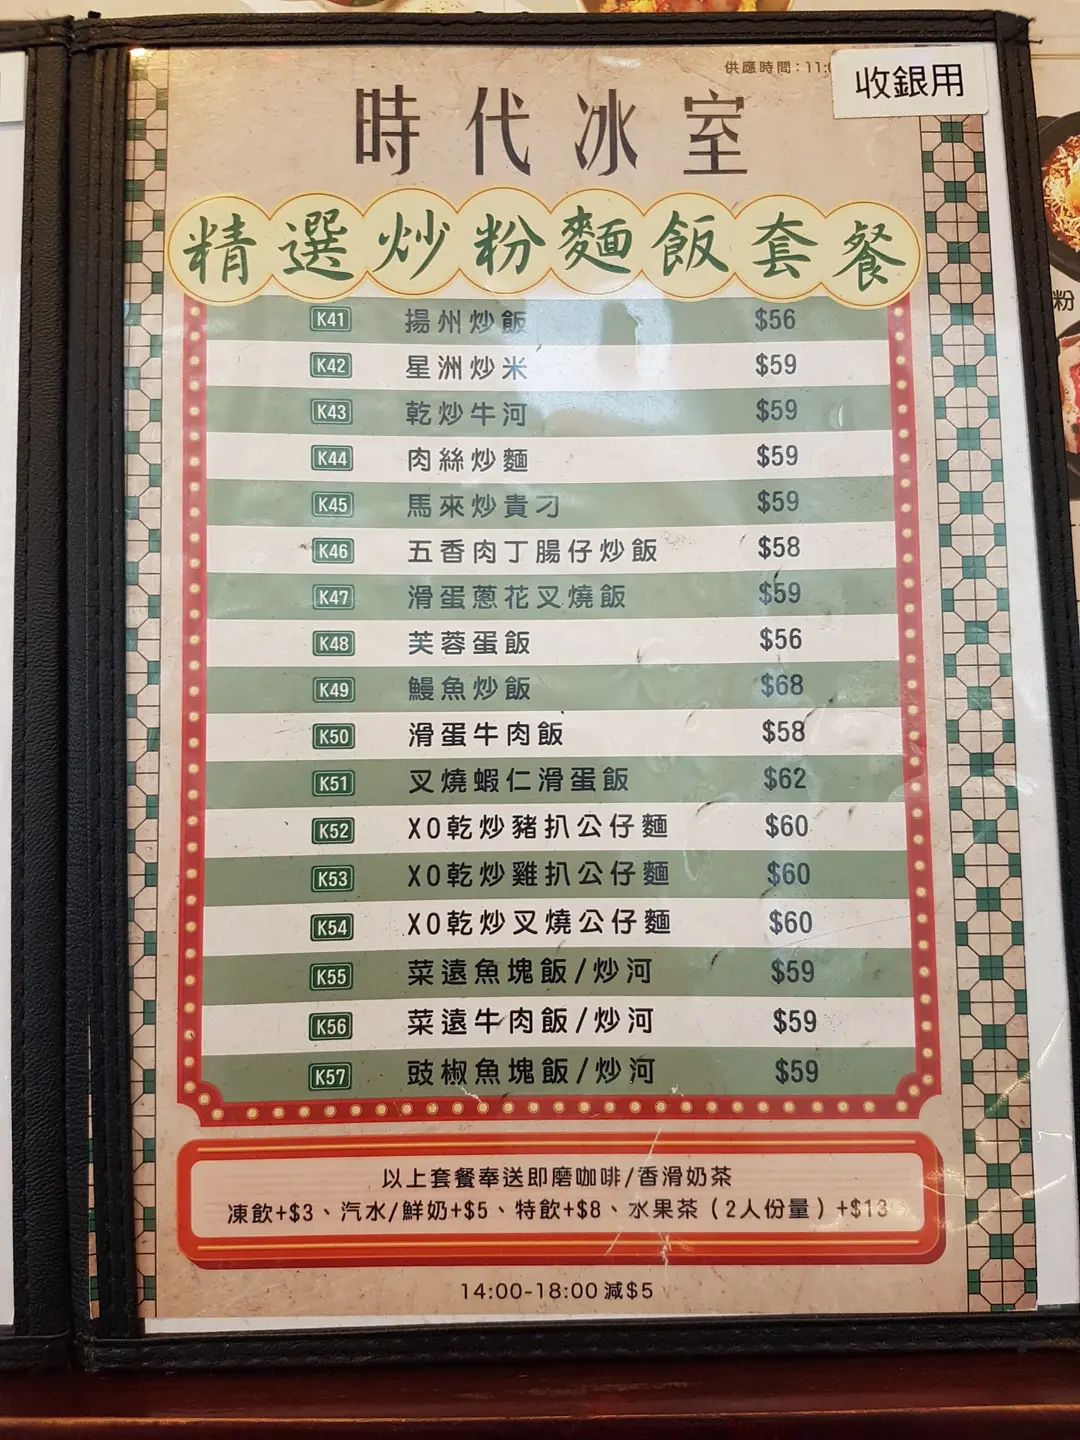 供應時間：11:0
收銀用
時代冰室
精選炒粉麵飯套餐
K41 揚州炒飯 $56
K42 星洲炒米 $59
K43 乾炒牛河 $59
K44 肉絲炒麵 $59
K45 馬來炒貴刁 $59
K46 五香肉丁腸仔炒飯 $58
K47 滑蛋蔥花叉燒飯 $59
K48 芙蓉蛋飯 $56
K49 鰻魚炒飯 $68
K50 滑蛋牛肉飯 $58
K51 叉燒蝦仁滑蛋飯 $62
K52 XO乾炒豬扒公仔麵 $60
K53 XO乾炒雞扒公仔麵 $60
K54 XO乾炒叉燒公仔麵 $60
K55 菜遠魚塊飯/炒河 $59
K56 菜遠牛肉飯/炒河 $59
K57 豉椒魚塊飯/炒河 $59
以上套餐奉送即磨咖啡/香滑奶茶
凍飲+$3、汽水/鮮奶+$5、特飲+$8、水果茶（2人份量）+$18
14:00-18:00減$5
粉